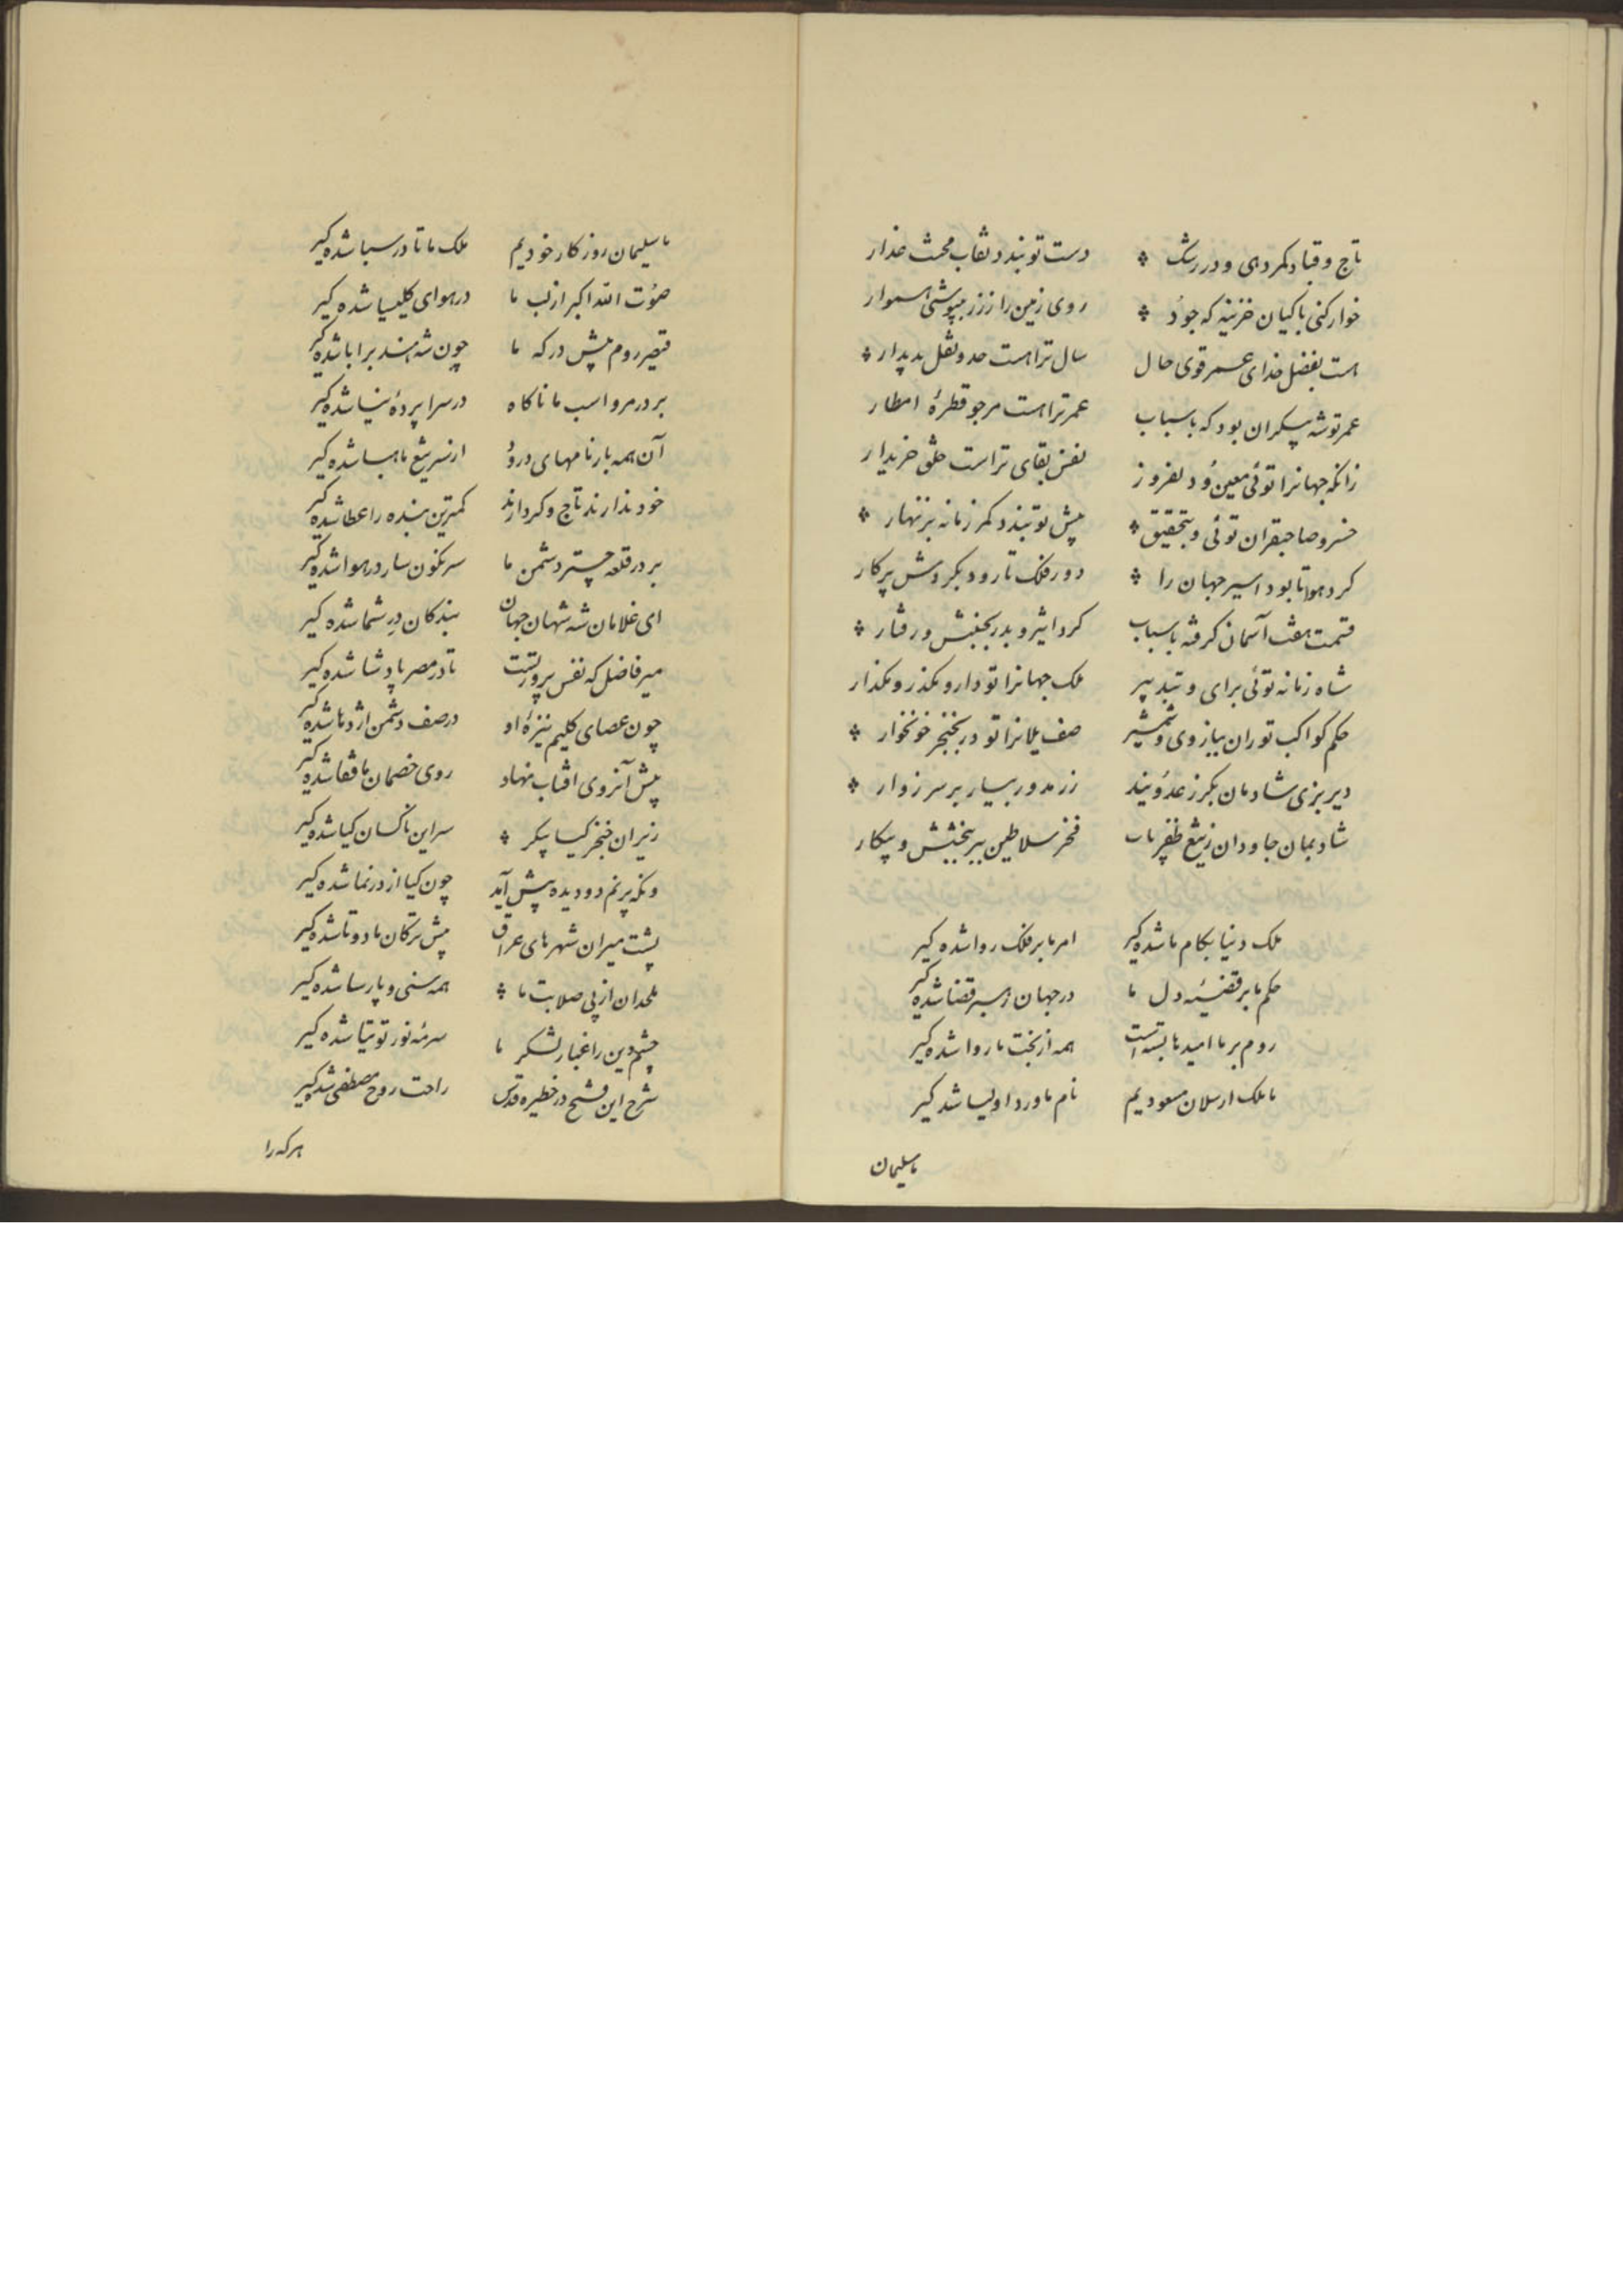 تاج و قباد کمر دهی و در رشک دست تو بندد نقاب محت عذار
خوار کنی با کیان خزینه که جود روی زمین را ز زر بپوشی هموار
هست بفضل خدای عمر قوی حال سال ترا هست حد و ثقل پدیدار
عمر تو شه بیکران بود که باسباب عمر ترا هست مرجو قطرهٔ امطار
زانکه جهانرا توئی معین و دلفروز نفس بقای تراست خلق خریدار
خسرو صاحبقران توئی و بتحقیق پیش تو بندد کمر زمانه بزنهار
کرد هوا تا بود اسیر جهان را دور فلک تا رود بکردش پرکار
قسمت هفت آسمان گرفه باسباب کرد اثیر و بدر بجنبش و رفتار
شاه زمانه توئی برای و بتدبیر ملک جهانرا تو دار و بگذر و بگذار
حکم کواکب تو ران ببازوی و شمشیر صف یلانرا تو در بخنجر خونخوار
دیر بزی شادمان بکرز عدو بند زر مدور بسیار بر سر زوار
شاد بمان جاودان ز تیغ ظفریاب فخر سلاطین ببر ببخشش و پیکار
ملک دنیا بکام ما شده گیر امر ما بر فلک روا شده گیر
حکم ما بر قضیئه دل ما در جهان همسر قضا شده گیر
روم بر ما امید ما بسته است همه از بخت ما روا شده گیر
ما ملک ارسلان مسعودیم نام ما ورد اولیا شد گیر
ما سلیمان
ما سلیمان روزکار خودیم ملک ما تا در سبا شده گیر
صوت الله اکبر از لب ما در هوای کلیسیا شده گیر
قیصر روم پیش درکه ما چون شه هند برا با شده گیر
بر در مرو اسب ما ناکاه در سرا پردهٔ نیا شده گیر
آن همه بارنامهای دروغ از سر تیغ ما هبا شده گیر
خود ندارند تاج و کر دارند کمترین بنده را عطا شده گیر
بر در قلعه چتر دشمن ما سرنکون سار در هوا شده گیر
ای غلامان شه شهان جهان بندکان در شما شده گیر
میر فاضل که نفس پرور تست تا در مصر پادشا شده گیر
چون عصای کلیم نیزهٔ او در صف دشمن اژدها شده گیر
پیش آنروی افتاب نهاد روی خصمان ما قفا شده گیر
زیران خنجر کیا پیکر سر این ناکسان کیا شده گیر
ونکه پرنم دو دیده پیش آید چون کیا از در نما شده گیر
پشت میران شهرهای عراق پیش ترکان ما دوتا شده گیر
ملحدان از پی صلابت ما همه سنی و پارسا شده گیر
چشم دین را غبار لشکر ما سرمهٔ نور توتیا شده گیر
شرح این فتح در خطیره قدس راحت روح مصطفی شده گیر
هرکه را